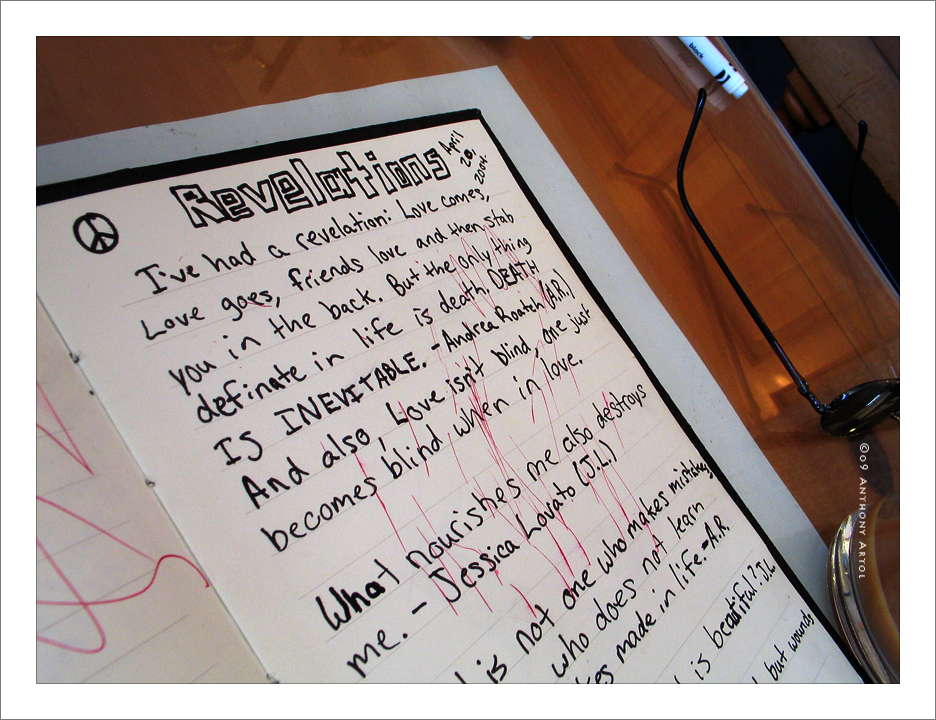 black
Revelations
April
20,
2004
I've had a revelation: Love comes,
Love goes, friends love and then stab
you in the back. But the only thing
definate in life is death. DEATH
IS INEVITABLE. -Andrea Roatch (A.R.)
And also, Love isn't blind, one just
becomes blind when in love.
What nourishes me also destroys
me. - Jessica Lovato (J.L.)
is not one who makes mistakes
who does not learn
made in life. -A.R.
is beautiful?" J.L.
but wounds
©09 ANTHONY ARTOL